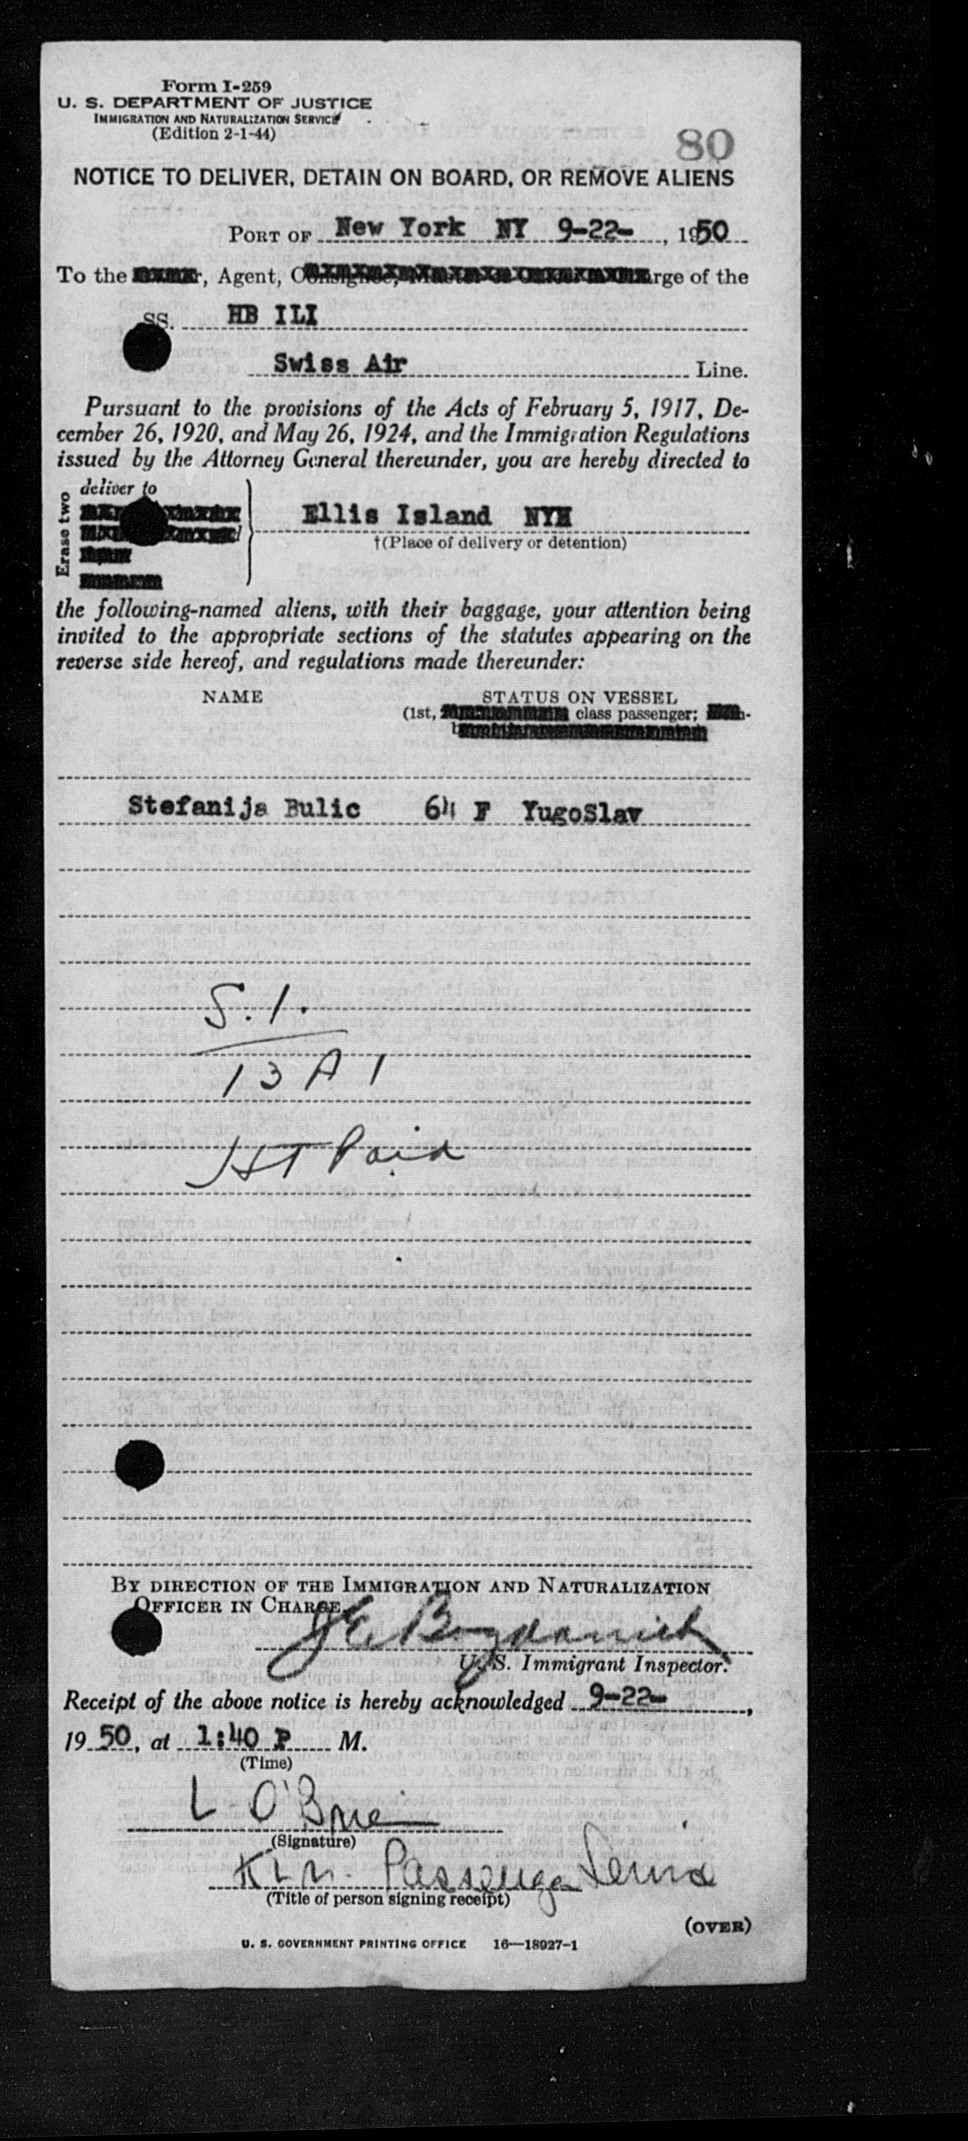 Form I-259
U. S. DEPARTMENT OF JUSTICE
IMMIGRATION AND NATURALIZATION SERVICE
(Edition 2-1-44)
80
NOTICE TO DELIVER, DETAIN ON BOARD, OR REMOVE ALIENS
PORT OF New York NY 9-22-, 1950
To the Agent, of the
SS. HB ILI
Swiss Air Line.
Pursuant to the provisions of the Acts of February 5, 1917, De-
cember 26, 1920, and May 26, 1924, and the Immigration Regulations
issued by the Attorney General thereunder, you are hereby directed to
Erase two
deliver to
Ellis Island NYH
†(Place of delivery or detention)
the following-named aliens, with their baggage, your attention being
invited to the appropriate sections of the statutes appearing on the
reverse side hereof, and regulations made thereunder:
NAME STATUS ON VESSEL
(1st, class passenger;
Stefanija Bulic 64 F YugoSlav
S.I.
13 A 1
HT Paid
BY DIRECTION OF THE IMMIGRATION AND NATURALIZATION
OFFICER IN CHARGE.
U. S. Immigrant Inspector.
Receipt of the above notice is hereby acknowledged 9-22-,
1950, at 1:40 P M.
(Time)
L O'Brien
(Signature)
KLM. Passenger
(Title of person signing receipt)
(OVER)
U. S. GOVERNMENT PRINTING OFFICE 16—18027-1